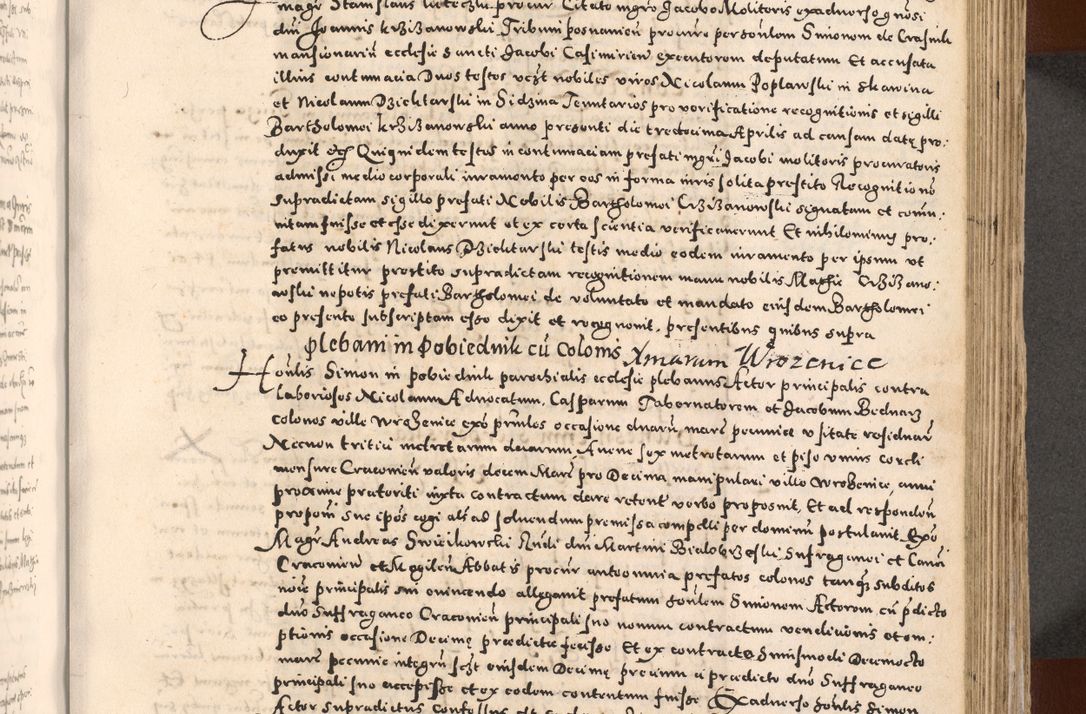 magr Stanislaus procur Citato mgro Jacobo Molitoris ex adverso gnosi
dni Joannis krzizanowski Tribuni posnanien procure personlem Simonem de Crasnik
mansionariu ecclesie sancti Jacobi Casimirien executorem deputatum Et accusata
illius contumacia Duos testes vczt nobiles viros Nicolaum Poplawski in Skawina
et Nicolaum Dziektarski in Sidzina Tenutarios pro verificatione recognitionis et sigilli
Bartholomei krzizanowski anno presenti die tredecima Aprilis ad causam date pro:
duxit Quiquidem testes in contumaciam prefati mgri Jacobi molitoris procuratoris
admissi medio corporali iuramento per eos in forma iuris solita prestito Recognitione
supradictam sigillo prefati Nobilis Bartholomei Crzizanowski signatam et comu:
nitam fuisse et esse dixerunt et ex certa scientia verificaverunt Et nihilominus pre:
fatus nobilis Nicolaus Dziektarski testis medio eodem iuramento per ipsum ut
premittitur prestito supradictam recognitionem manu nobilis Mathie Crzizano:
wski nepotis prefati Bartholomei de voluntate et mandato eiusdem Bartholomei
eo presente subscriptam esse dixit et recognovit, presentibus quibus supra
plebani in Pobiednik cu Colonis Xmarum Wrozenice
Honlis Simon in pobiednik parochialis ecclesie plebanus Actor principalis contra
Laboriosos Nicolaum Advocatum, Casparum Tabernatorem et Jacobum Bednarz
colonos ville Wrozenice ex princles occasione duaru mar pecunie usitate residuaru
Necnon tritici metretarum duarum Avene sex metretarum et piso unius corcli
mensure Cracovien valoris decem Marc pro Decima manipulari ville Wrozenice, anni
proxime preteriti iuxta contractum dare retent verbo proposuit, Et ad respondendu
proponi sue ipos cogi als ad solvendum premissa compelli per dominu postulavit
Magr Andreas Swiezikowski Rndi dni Martini Bialobrzeski Suffraganei et Canon
Cracovien et Mogilen Abbatis procur ante omnia prefatos colonos tanq subditos
noie principalis sui evincendo allegavit prefatum honlem Simonem Actorem cu pdicto
dno Suffraganeo Cracovien principali suo nomine contractum venditionis et em:
ptionis occasione Decime predicte fecisse Et ex contractu huiusmodi Decemocto
marc pecunie integru sczt eiusdem Decime precium a predicto dno Suffraganeo
principali suo accepisse et ex eodem contentum fuisse Ex adverso honlis Simon
Actor supradictus